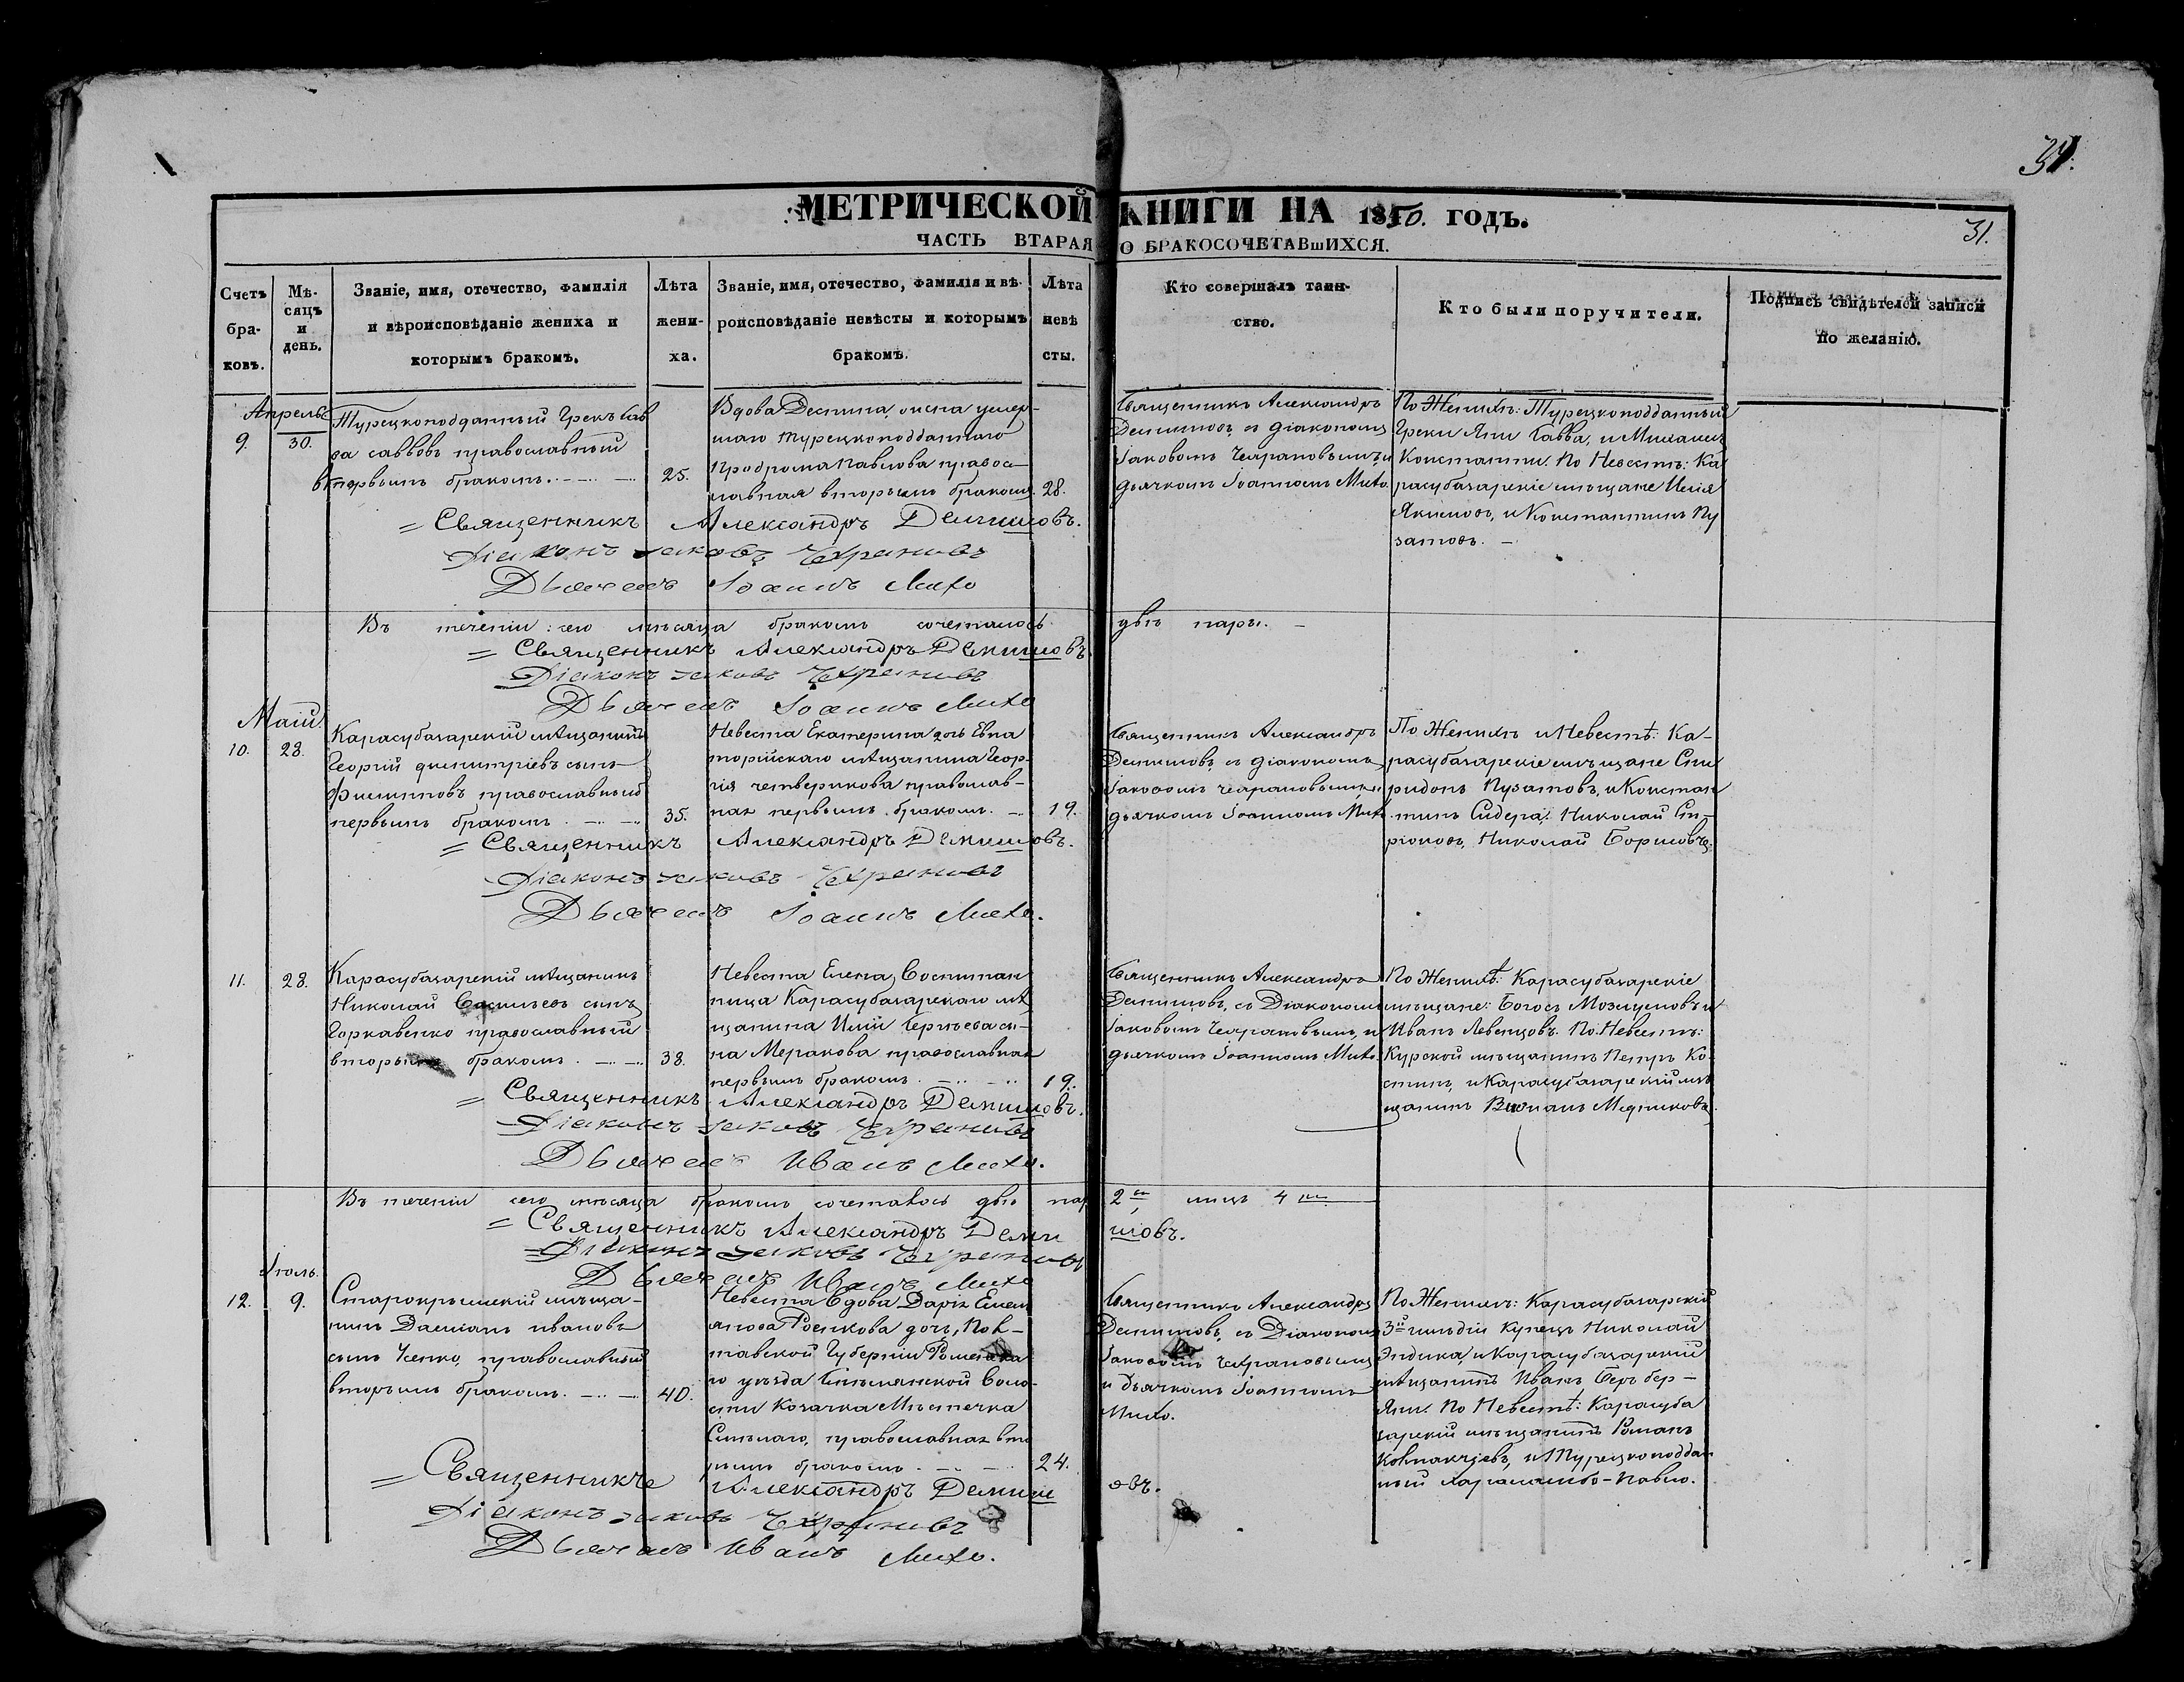 31.
МЕТРИЧЕСКОЙ КНИГИ НА 1850. ГОДЪ.
31.
ЧАСТЬ ВТАРАЯ О БРАКОСОЧЕТАВшИХСЯ.
Счетъ бра-ковъ.
Мѣ-сяцъ и день.
Званіе, имя, отечество, фамилія
и вѣроисповѣданіе жениха и
которымъ бракомъ.
Лѣта жени-ха.
Званіе, имя, отечество, фамилія и вѣ-
роисповѣданіе невѣсты и которымъ
бракомъ.
Лѣта невѣ сты.
Кто совершалъ таин-
ство.
Кто были поручители.
Подпись свидѣтелей записи
по желанію.
Апрель
9.
30.
Турецкоподданный Грекъ Сав
ва саввовъ православный
вторымъ бракомъ.
25.
Вдова Деспина, жена умер-
шаго турецкоподданнаго
Продрома Павлова правос-
лавная вторымъ бракомъ.
28.
Священникъ Александръ
Демишовъ, съ діакономъ
Іаковомъ Чехрановымъ, и
дьячкомъ Іоанномъ Михо.
По Женихѣ: Турецкоподданныи
Греки Яни Савва, и Михаилъ
Константи. По Невестѣ: Ка
расубазарскіе мѣщане Илія
Якимовъ, и Константинъ Пу
затовъ.
Священникъ Александръ Демишовъ.
Діаконъ Іаковъ Чехрановъ
Дьячекъ Іоаннъ Михо
Въ теченіи сего мѣсяца бракомъ сочеталось двѣ пары.
Священникъ Александръ Демишовъ.
Діаконъ Іаковъ Чехрановъ
Дьячекъ Іоаннъ Михо
Маій
10.
28.
Карасубазарскій мѣщанинъ
Георгій димитріевъ сынъ
Филиповъ православный
первымъ бракомъ.
35.
Невеста Екатерина дочь Евпа
торійскаго мѣщанина Геор-
гія четверикова православ-
ная первымъ бракомъ.
19.
Священникъ Александръ
Демишовъ, съ діакономъ
Іаковомъ Чехрановымъ, и
дьячкомъ Іоанномъ Михо.
По Женихѣ и Невестѣ: Ка-
расубазарскіе мѣщане Спи
ридонъ Пузатовъ, и Констан
тинъ Сидера, Николай
Николай Борисовъ.
Священникъ Александръ Демишовъ.
Діаконъ Іаковъ Чехрановъ
Дьячекъ Іоаннъ Михо.
11.
28.
Карасубазарскій мѣщанинъ
Николай Васильевъ сынъ
Горкавенко православный
вторымъ бракомъ.
38.
Невеста Елена, Воспитан
ница Карасубазарскаго мѣ
щанина Иліи
православная
первымъ бракомъ.
19.
Священникъ Александръ
Демишовъ, съ Діакономъ
Іаковомъ Чехрановымъ, и
дьячкомъ Іоанномъ Михо.
По Женихѣ: Карасубазарскіе
мѣщане: Богосъ и
Иванъ Левенцовъ. По Невестѣ:
Курской мѣщанинъ Петръ Ко
стинъ, и Карасубазарскій мѣ
щанинъ Медниковъ.
Священникъ Александръ Демишовъ.
Діаконъ Іаковъ Чехрановъ
Дьячекъ Иванъ Михо.
Въ теченіи сего мѣсяца бракомъ сочеталось двѣ пар 2 лицъ 4
Священникъ Александръ Демишовъ.
Діаконъ Іаковъ Чехрановъ
Дьячекъ Иванъ Михо
Іюль.
12.
9.
Старокрымскій мѣща-
нинъ Даміанъ ивановъ
сынъ Усенко, православный
вторымъ бракомъ.
40.
Невеста Вдова Дарія Емель
янова дочь, Пол-
тавской Губерніи Роменска
го уѣзда Смѣлянской Воло-
сти Козачка Мѣстечка
Смѣлаго, православная вто
рымъ бракомъ.
24.
Священникъ Александръ
Демишовъ, съ Діакономъ
Іаковомъ Чехрановымъ
и дьячкомъ Іоанномъ
Михо.
По Женихѣ: Карасубазарскій
3й гильдіи Купецъ Николай
и Карасубазарскій
мѣщанинъ Иванъ Бер бер-
Яни. По Невестѣ: Карасуба
зарскій мѣщанинъ Романъ
Колпакчіевъ, и Турецкоподдан
ный Харалампо-Павло.
Священникъ Александръ Демишовъ.
Діаконъ Іаковъ Чехрановъ
Дьячекъ Иванъ Михо.